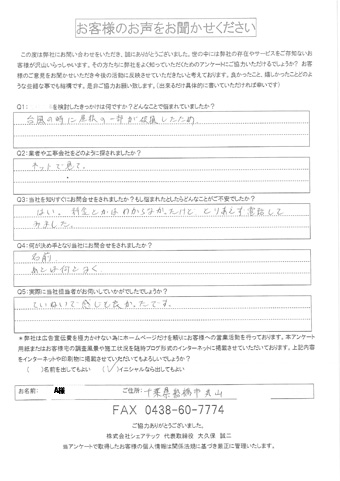 お客様のお声をお聞かせください
この度は弊社にお問い合わせをいただき、誠にありがとうございました。世の中には弊社の存在やサービスをご存知ないお
客様が沢山いらっしゃいます。その方たちに弊社をよく知っていただくためのアンケートにご協力いただけるでしょうか？ お
客様のご意見をお聞かせいただき今後の活動に反映させていただきたいと考えております。良かったこと、嬉しかったことどのよ
うな些細な事でも結構です、是非ご協力お願い致します。(出来るだけ具体的に書いていただければ幸いです)
Q1: を検討したきっかけは何ですか？どんなことで悩まれていましたか？
台風の時に屋根の一部が破損したため.
Q2:業者や工事会社をどのように探されましたか？
ネットで見て.
Q3:当社を知りすぐにお問合せをされましたか？もし悩まれたとしたらどんなことがご不安でしたか？
はい. 料金とかはわからなかったけど とりあえず電話して
みました.
Q4:何が決め手となり当社にお問合せをされましたか？
名前.
あとは何となく.
Q5:実際に当社担当者がお伺いしていかがでしたでしょうか？
ていねいで感じも良かったです.
＊弊社は広告宣伝費を極力かけない為にホームページだけを頼りにお客様への営業活動を行っております。本アンケート
用紙またはお客様宅の調査風景や施工状況を随時ブログ形式のインターネットに掲載させていただいております。上記内容
をインターネットや印刷物に掲載させていただいてもよろしいでしょうか？
( )名前を出してもよい (✓)イニシャルなら出してもよい
お名前: A様 ご住所: 千葉県船橋市丸山
FAX 0438-60-7774
ご協力ありがとうございました。
株式会社シェアテック 代表取締役 大久保 誠二
当アンケートで取得したお客様の個人情報は関係法規に基づき厳正に管理いたします。